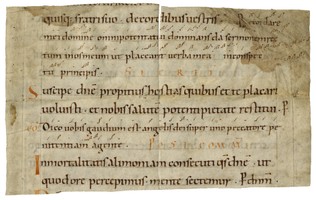 quisq; fratri suo de cordibus vestris. Recordare
mei domine omnipotentatui dominans da sermonem rec
tum in os meum ut placeant verba mea in conspec
tu principis.
Suscipe dne propitius hostias quibus et te placari
voluisti et nobis salute potenti pietate restitui. P
Dico vobis gaudium est angelis dei super uno peccatore pe
nitentiam agente.
Inmortalitatis alimoniam consecuti qs dne ut
quod ore percepimus mente sectemur. P dnm